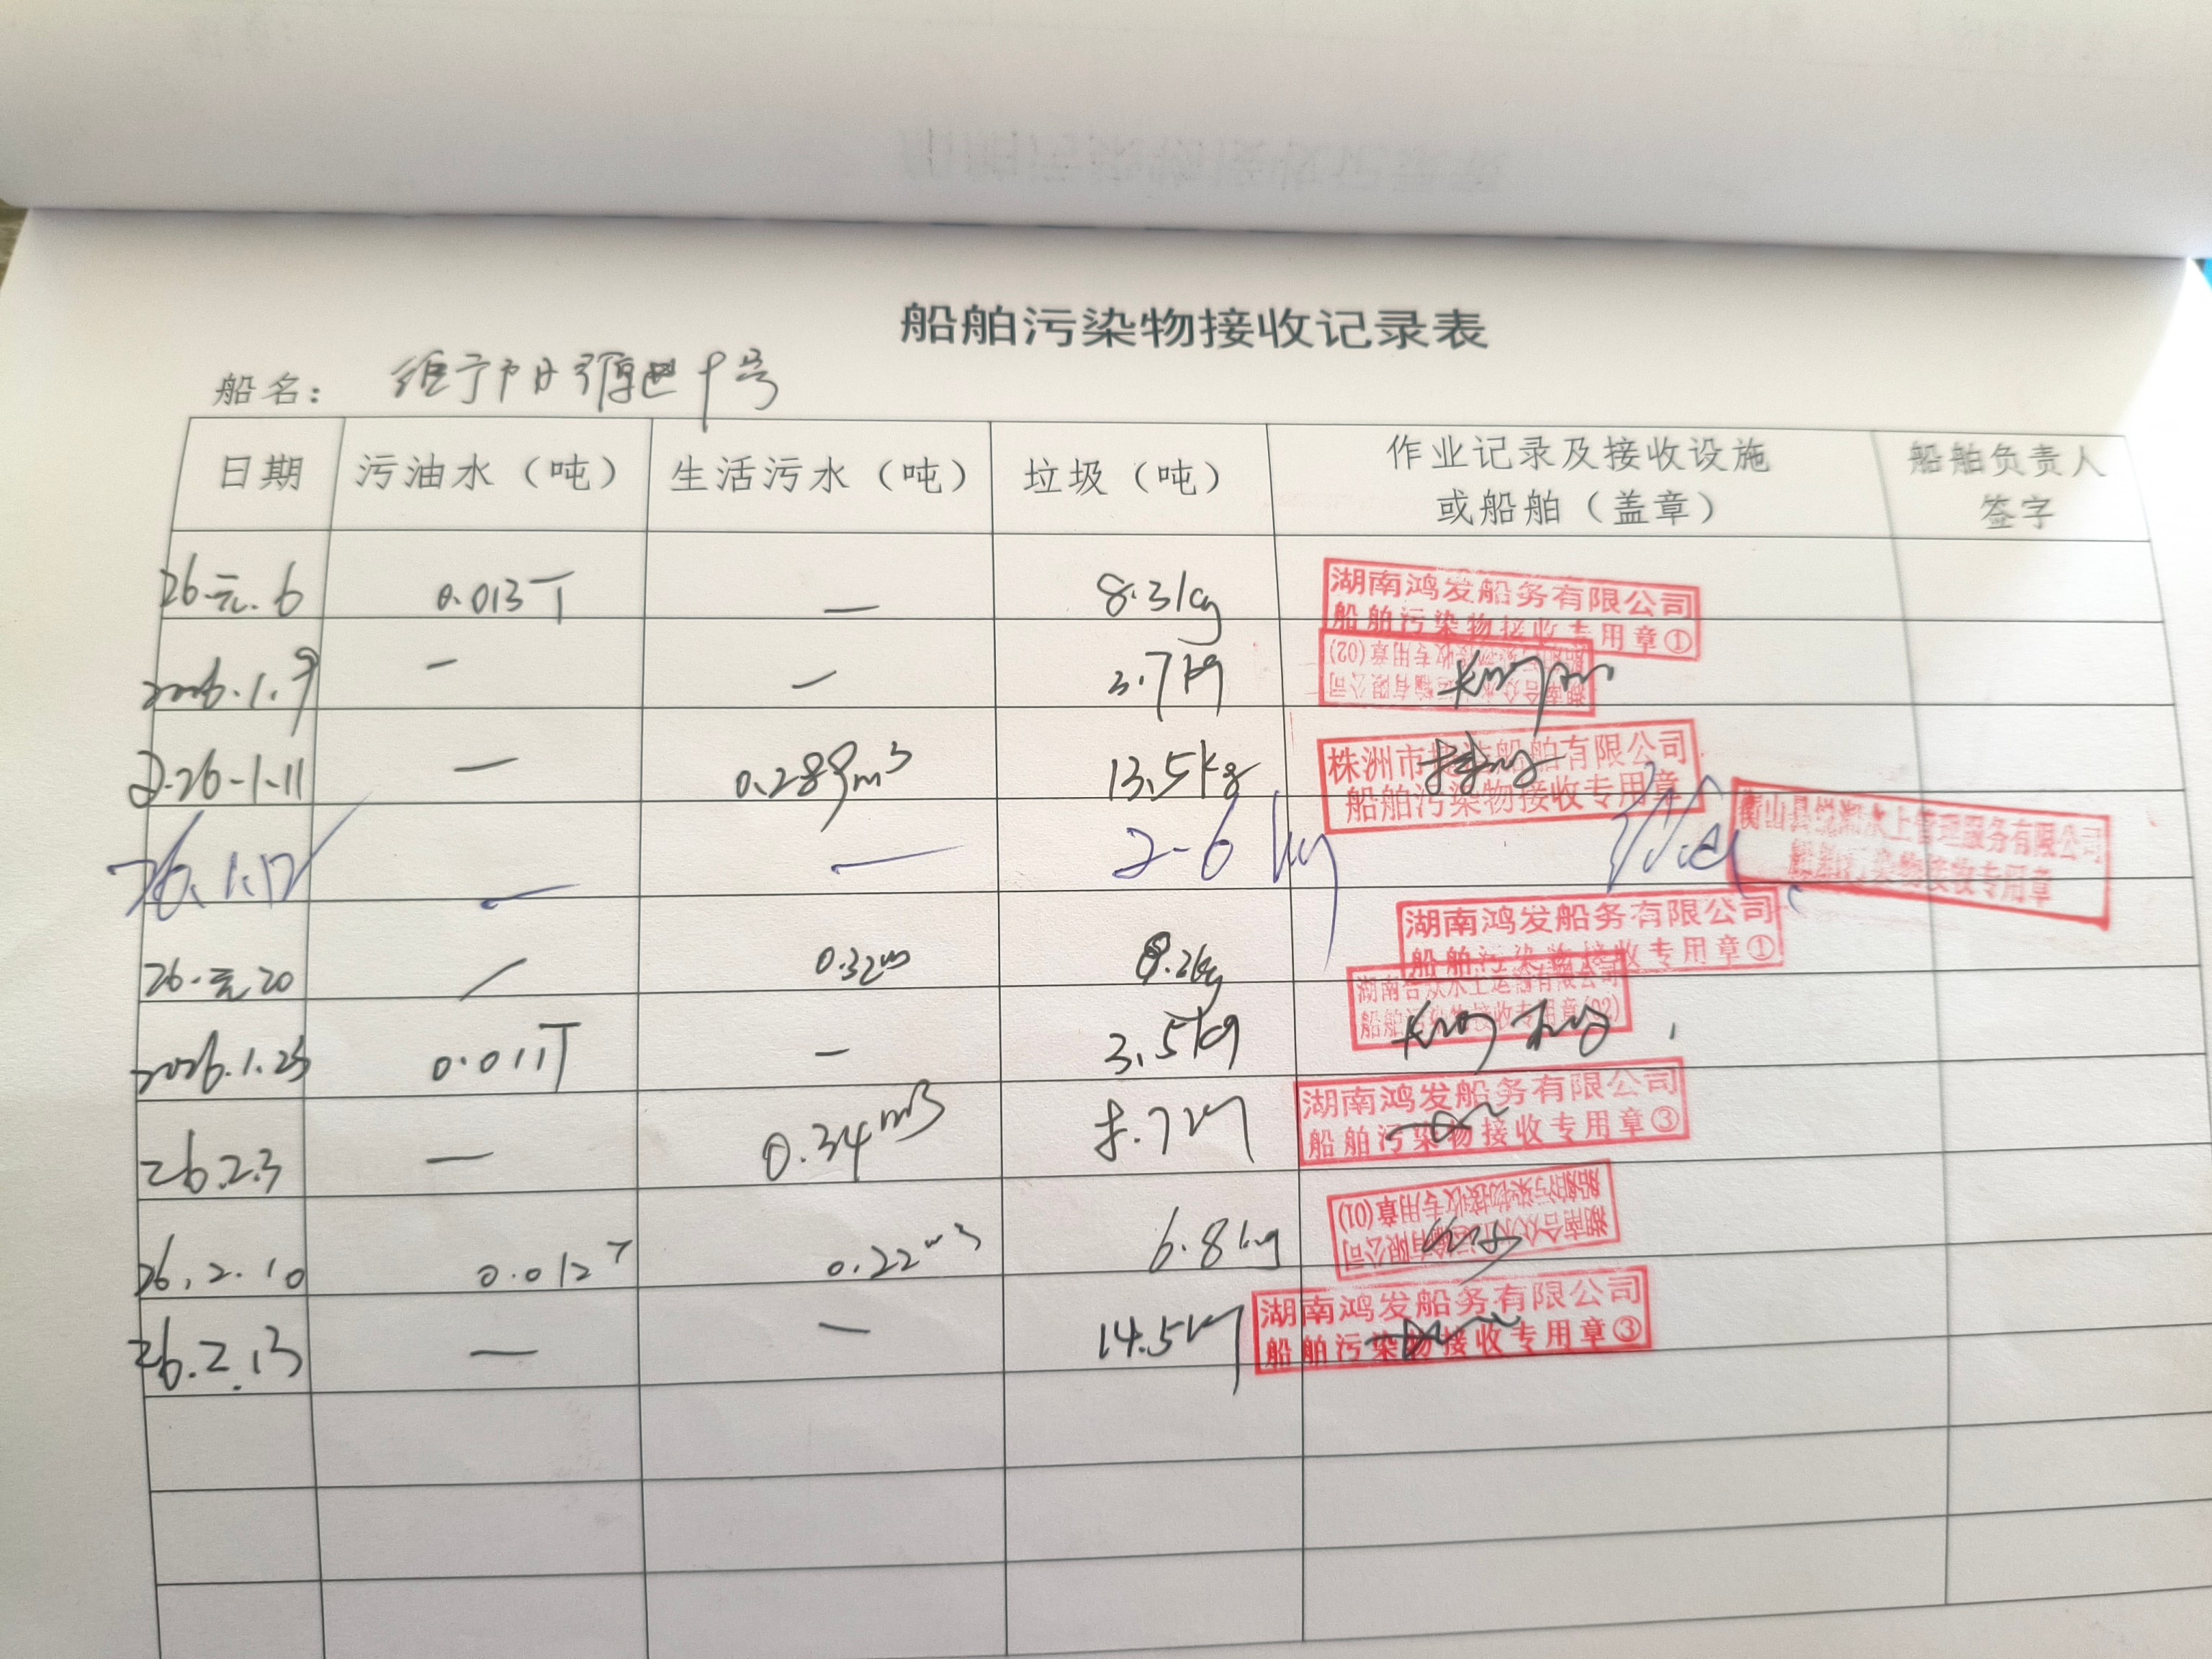 船舶污染物接收记录表
船名：
日期 污油水（吨） 生活污水（吨） 垃圾（吨） 作业记录及接收设施或船舶（盖章） 船舶负责人签字
26.元.6 0.013T — 8.3kg
湖南鸿发船务有限公司
船舶污染物接收专用章①
2026.1.9 — — 3.7kg
船舶污染物接收专用章(02)
2026-1-11 — 0.289m3 13.5kg
株洲市 船舶有限公司
船舶污染物接收专用章
26.1.17 — — 2-6kg
衡山县 水上管理服务有限公司
船舶污染物接收专用章
26.元20 / 0.32m 8.2kg
湖南鸿发船务有限公司
船舶污染物接收专用章①
湖南合众水上运输有限公司
船舶污染物接收专用章(02)
2026.1.25 0.011T — 3.5kg
26.2.3 — 0.34m3 8.7kg
湖南鸿发船务有限公司
船舶污染物接收专用章③
26.2.10 0.012T 0.22m3 6.8kg
船舶污染物接收专用章(01)
湖南合众水上运输有限公司
26.2.13 — — 14.5kg
湖南鸿发船务有限公司
船舶污染物接收专用章③